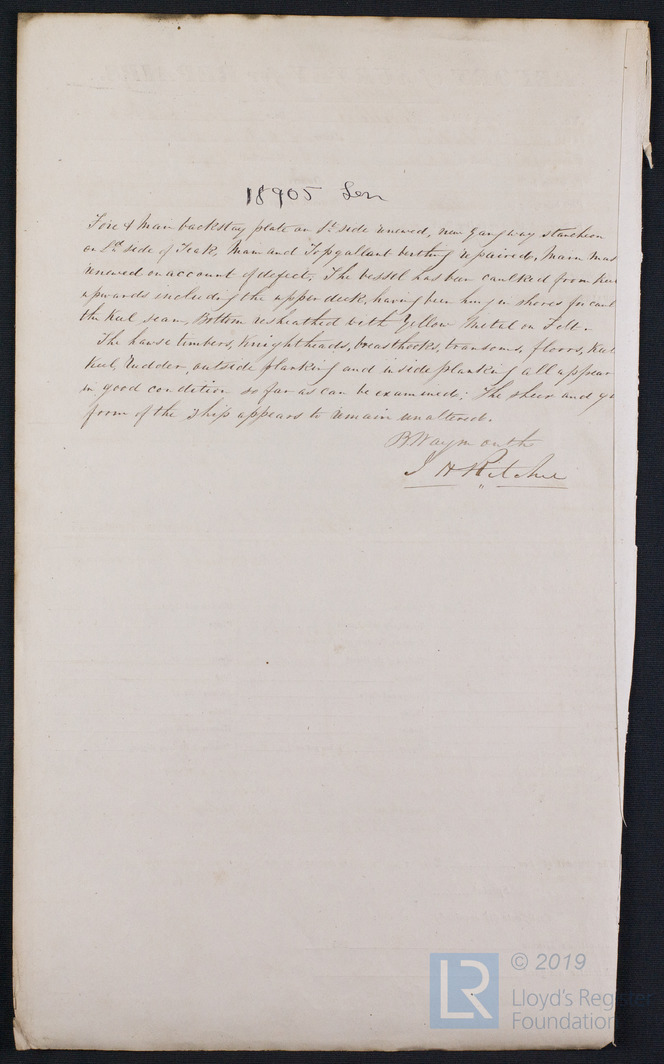 18905 Lon
Fore & Main backstay plate on St side renewed, new gangway stancheon
on Pd side of Teak, Main and Topgallant bitting repaired, Main Mas
renewed on account of defect. The vessel has been caulked from keel
upwards including the upper deck, having been hung in shores for caul
the keel seam, Bottom resheathed with Yellow Metal on Felt.
The hawse timbers, Knightheads, breasthooks, transoms, floors, Keel
keel, Rudder, outside planking and inside planking all appear
in good condition so far as can be examined: The sheer and ge
form of the Ship appears to remain unaltered.
B Waymouth
J H Ritchie
© 2019
LR
Lloyd's Register
Foundation